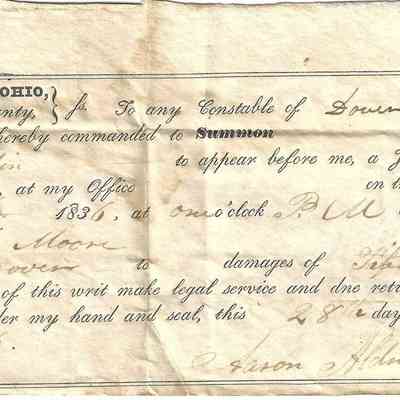 OHIO,
unty, } ss. To any Constable of Dover
hereby commanded to Summon
to appear before me, a J
, at my Office on th
1836, at one o'clock P. M
Moore
over to damages of
of this writ make legal service and dne retu
der my hand and seal, this 28th day
Aaron